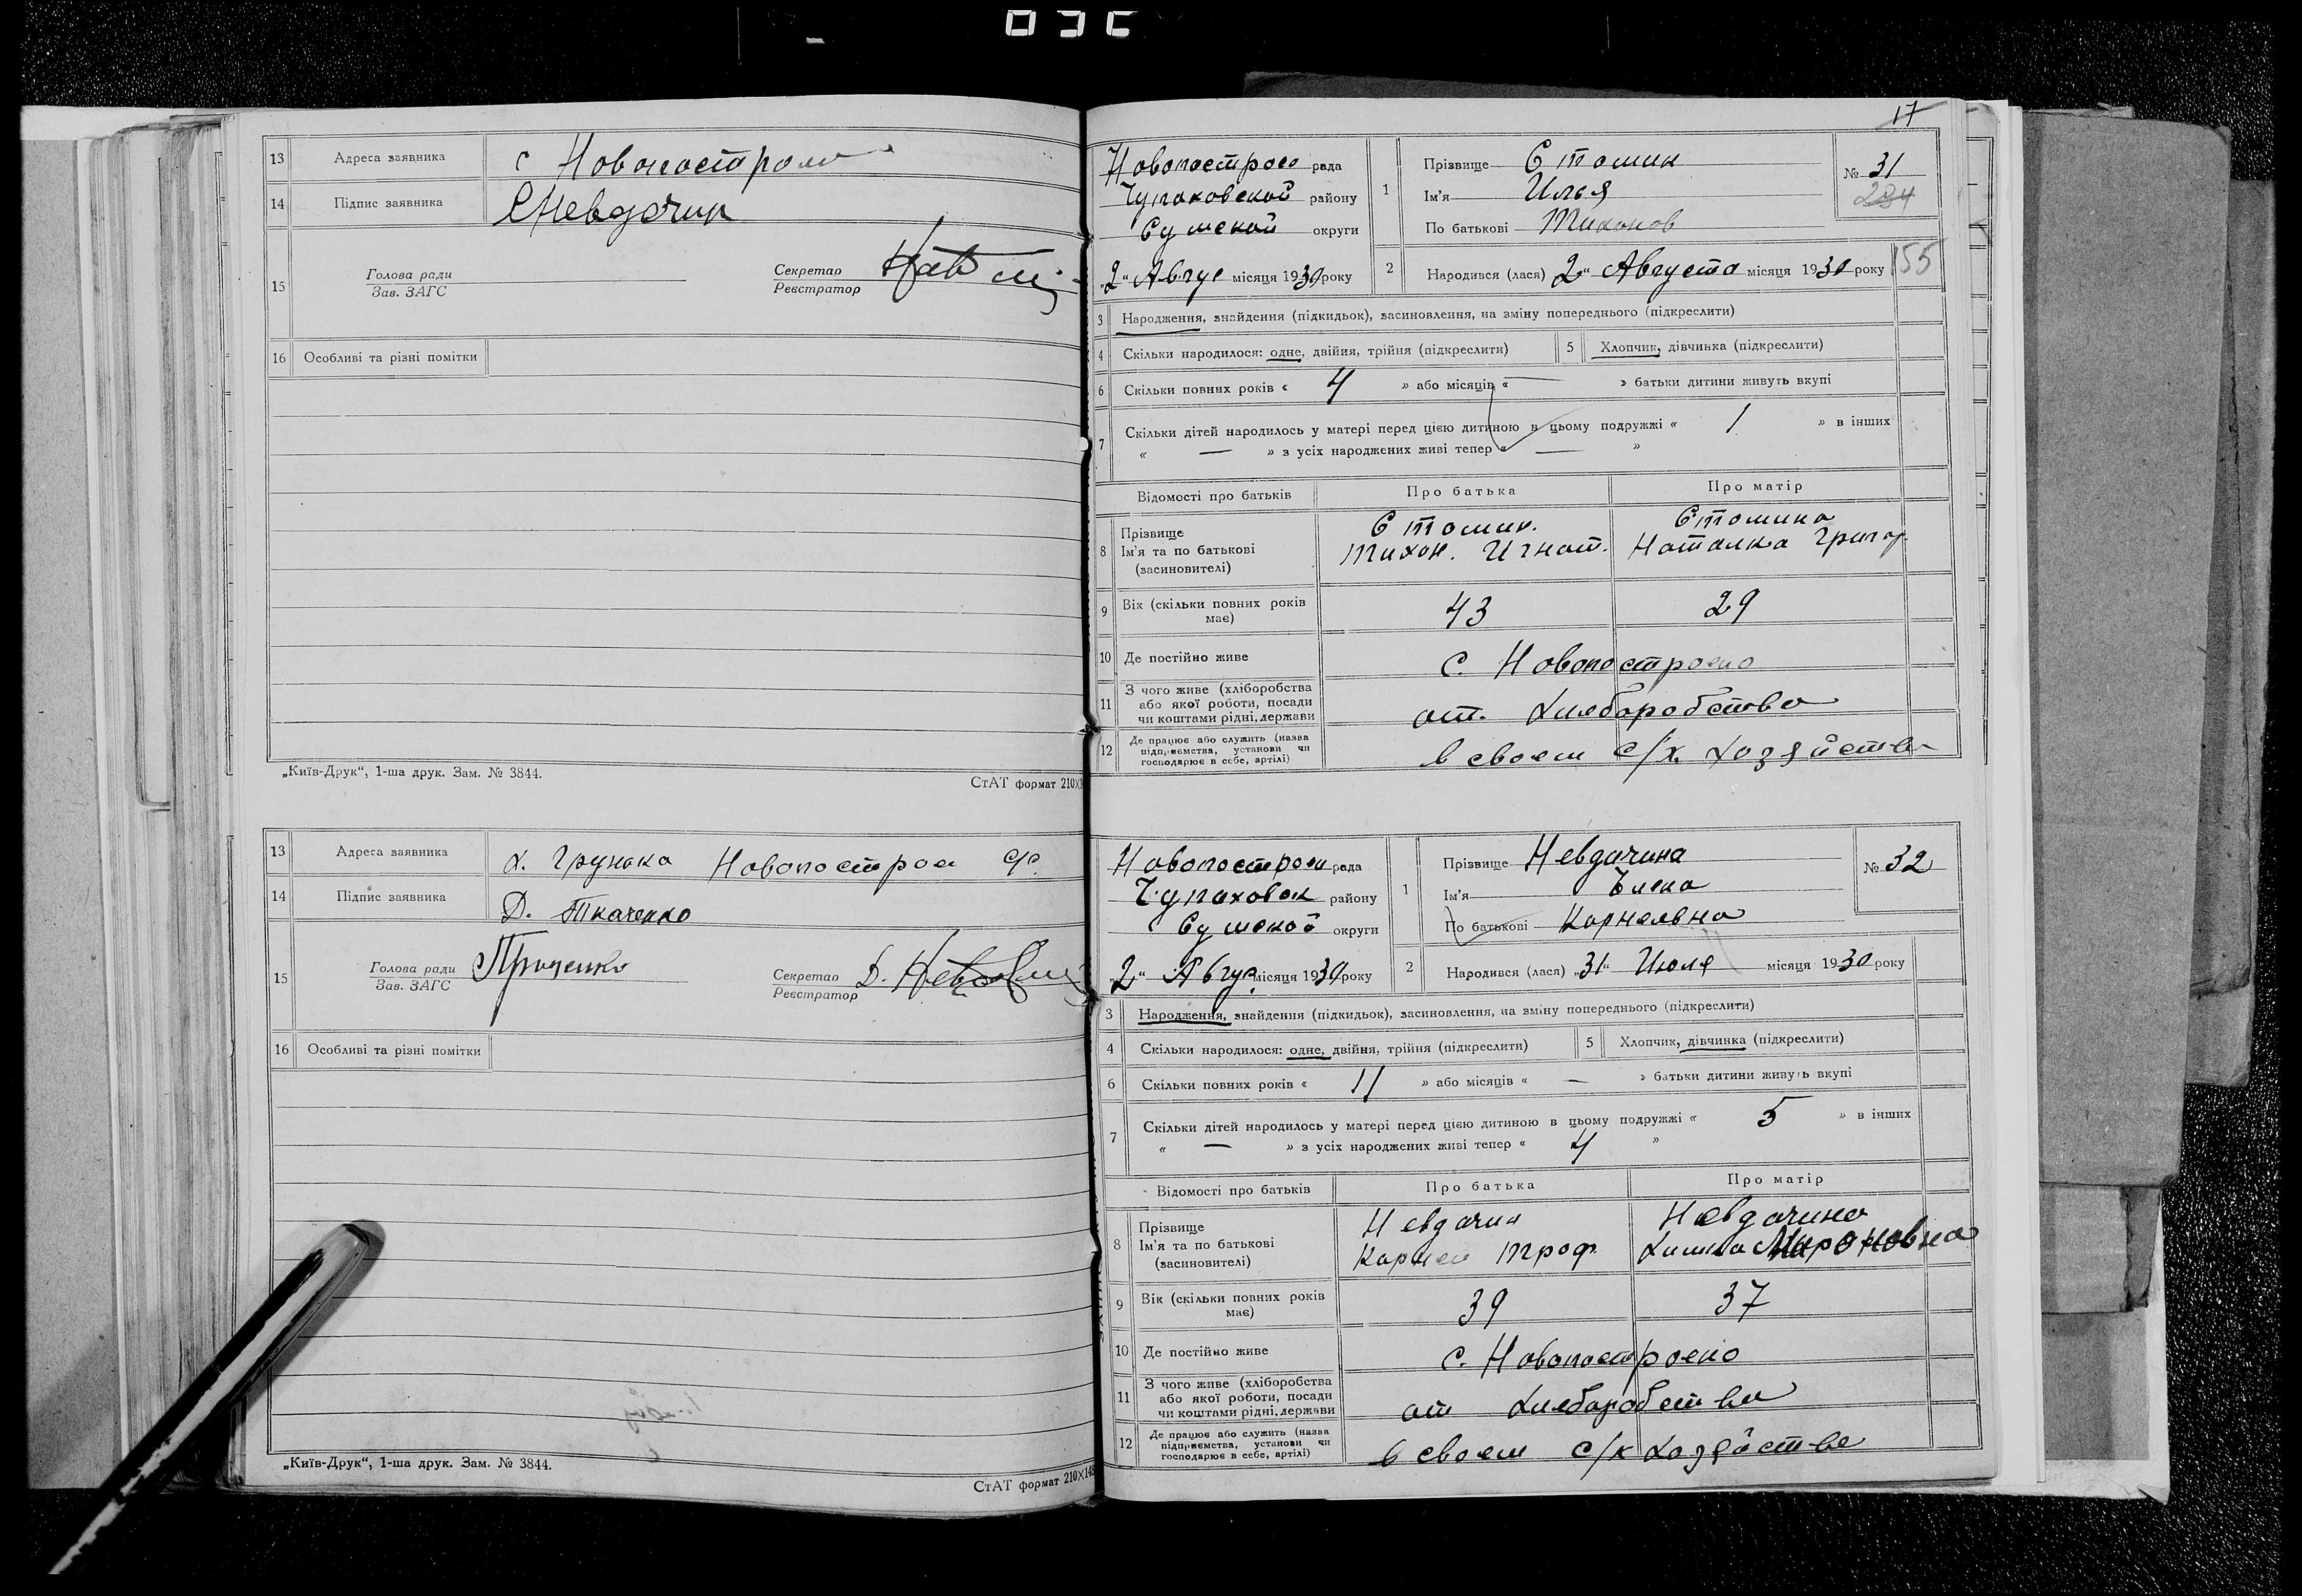 13 Адреса заявника с Новопострои
14 Підпис заявника Невдачин
15 Голова ради
Зав. ЗАГС
Секретар
Реєстратор
16 Особливі та різні помітки
„Київ-Друк“, 1-ша друк. Зам. № 3844.
СтАТ формат 210×1
13 Адреса заявника х. Грунька Новопострои с/с
14 Підпис заявника Д. Ткаченко
15 Голова ради
Зав. ЗАГС
Секретар
Реєстратор
16 Особливі та різні помітки
„Київ-Друк“, 1-ша друк. Зам. № 3844.
СтАТ формат 210×148
17
Новопострое рада
Чупаховской району
Сумской округи
„2“ Авгус місяця 1930 року
1 Прізвище Стомин
Ім'я Илья
По батькові Тихонов
№ 31
294
155
2 Народився (лася) 2“ Августа місяця 1930 року
3 Народження, знайдення (підкидьок), засиновлення, на зміну попереднього (підкреслити)
4 Скільки народилося: одне, двійня, трійня (підкреслити) 5 Хлопчик, дівчинка (підкреслити)
6 Скільки повних років « 4 » або місяців « — » батьки дитини живуть вкупі
7 Скільки дітей народилось у матері перед цією дитиною в цьому подружжі « 1 » в інших
« — » з усіх народжених живі тепер « — »
Відомості про батьків Про батька Про матір
8 Прізвище
Ім'я та по батькові
(засиновителі)
Стомин.
Тихон. Игнат.
Стомина
Наталка Григор.
9 Вік (скільки повних років має) 43 29
10 Де постійно живе с. Новопостроено
11 З чого живе (хліборобства
або якої роботи, посади
чи коштами рідні, держави
от. Хлеборобства
12 Де працює або служить (назва
підприємства, установи чи
господарює в себе, артілі)
в своем с/х. хозяйстве
Новопострои рада
Чупаховск району
Сумской округи
„2“ Авгус місяця 1930 року
1 Прізвище Невдачина
Ім'я Елена
По батькові Корнеевна
№ 32
2 Народився (лася) „31“ Июля місяця 1930 року
3 Народження, знайдення (підкидьок), засиновлення, на зміну попереднього (підкреслити)
4 Скільки народилося: одне, двійня, трійня (підкреслити) 5 Хлопчик, дівчинка (підкреслити)
6 Скільки повних років « 11 » або місяців « — » батьки дитини живуть вкупі
7 Скільки дітей народилось у матері перед цією дитиною в цьому подружжі « 5 » в інших
« — » з усіх народжених живі тепер « 4 »
Відомості про батьків Про батька Про матір
8 Прізвище
Ім'я та по батькові
(засиновителі)
Невдачин
Корней Троф.
Невдачина
Мироновна
9 Вік (скільки повних років має) 39 37
10 Де постійно живе с. Новопостроено
11 З чого живе (хліборобства
або якої роботи, посади
чи коштами рідні, держави
от Хлеборобства
12 Де працює або служить (назва
підприємства, установи чи
господарює в себе, артілі)
в своем с/х хозяйстве